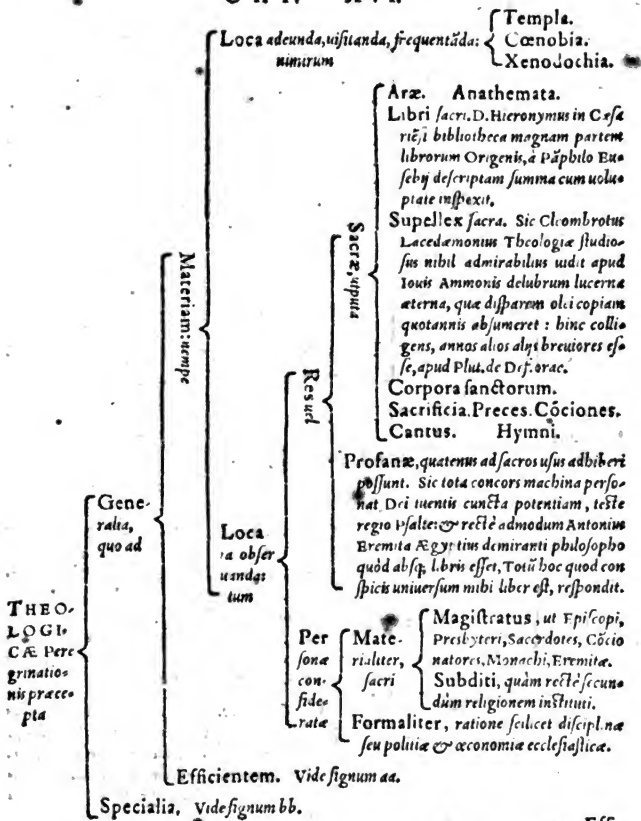 Loca adeunda, uisitanda, frequentāda:
nimirum
Templa.
Cœnobia.
Xenodochia.
Aræ. Anathemata.
Libri sacri. D. Hieronymus in Cæsa
riēsi bibliotheca magnam partem
librorum Origenis, à Pāphilo Eu-
sebij descriptam summa cum uolu-
ptate inspexit.
Supellex sacra. Sic Cleombrotus
Lacedæmonius Theologiæ studio-
sus nihil admirabilius uidit apud
Iouis Ammonis delubrum lucerna
æterna, quæ disparem olei copiam
quotannis absumeret : hinc colli-
gens, annos alios alijs breuiores es-
se, apud Plut. de Def. orac.
Corpora sanctorum.
Sacrificia. Preces. Cōciones.
Cantus. Hymni.
Sacræ, utputa
Profanæ, quatenus ad sacros usus adhiberi
possunt. Sic tota concors machina perso-
nat Dei tuentis cuncta potentiam, teste
regio Psalte: & rectè admodum Antonius
Eremita Ægyptius demiranti philosopho
quòd absq; libris esset, Totū hoc quod con
spicis uniuersum mihi liber est, respondit.
Res uel
Materiam: nempe
Loca
obser
uanda:
tum
Per
sonæ
con-
side-
ratæ
Mate-
rialiter,
sacri
Magistratus, ut Episcopi,
Presbyteri, Sacerdotes, Cōcio
natores, Monachi, Eremitæ.
Subditi, quàm rectè secun-
dùm religionem instituti.
Formaliter, ratione scilicet discipl.næ
seu politiæ & œconomiæ ecclesiasticæ.
THEO-
LOGI-
CÆ Pere
grinatio-
nis præce-
pta
Gene-
ralia,
quo ad
Efficientem. Vide signum aa.
Specialia, Vide signum bb.